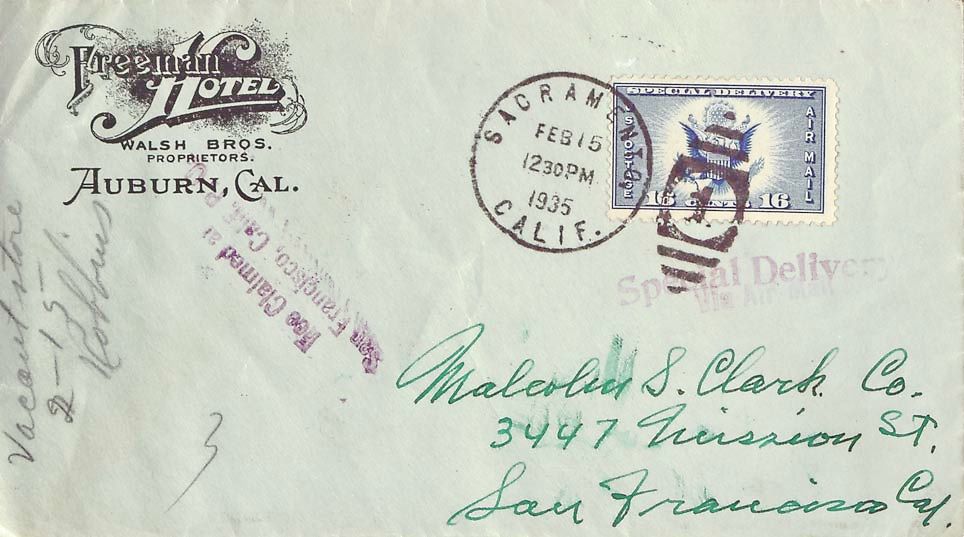 Freeman
HOTEL
WALSH BROS.
PROPRIETORS.
AUBURN, CAL.
SACRAMENTO
FEB 15
12 30 PM
1935
CALIF.
SPECIAL DELIVERY
AIR MAIL
U S POSTAGE
16 CENTS 16
Special Delivery
Via Air Mail
Fee Claimed at
San Francisco, Calif.
Vacant store
2-15-
Robbins
3
Malcolm S. Clark Co.
3447 Mission St.
San Francisco
Cal.